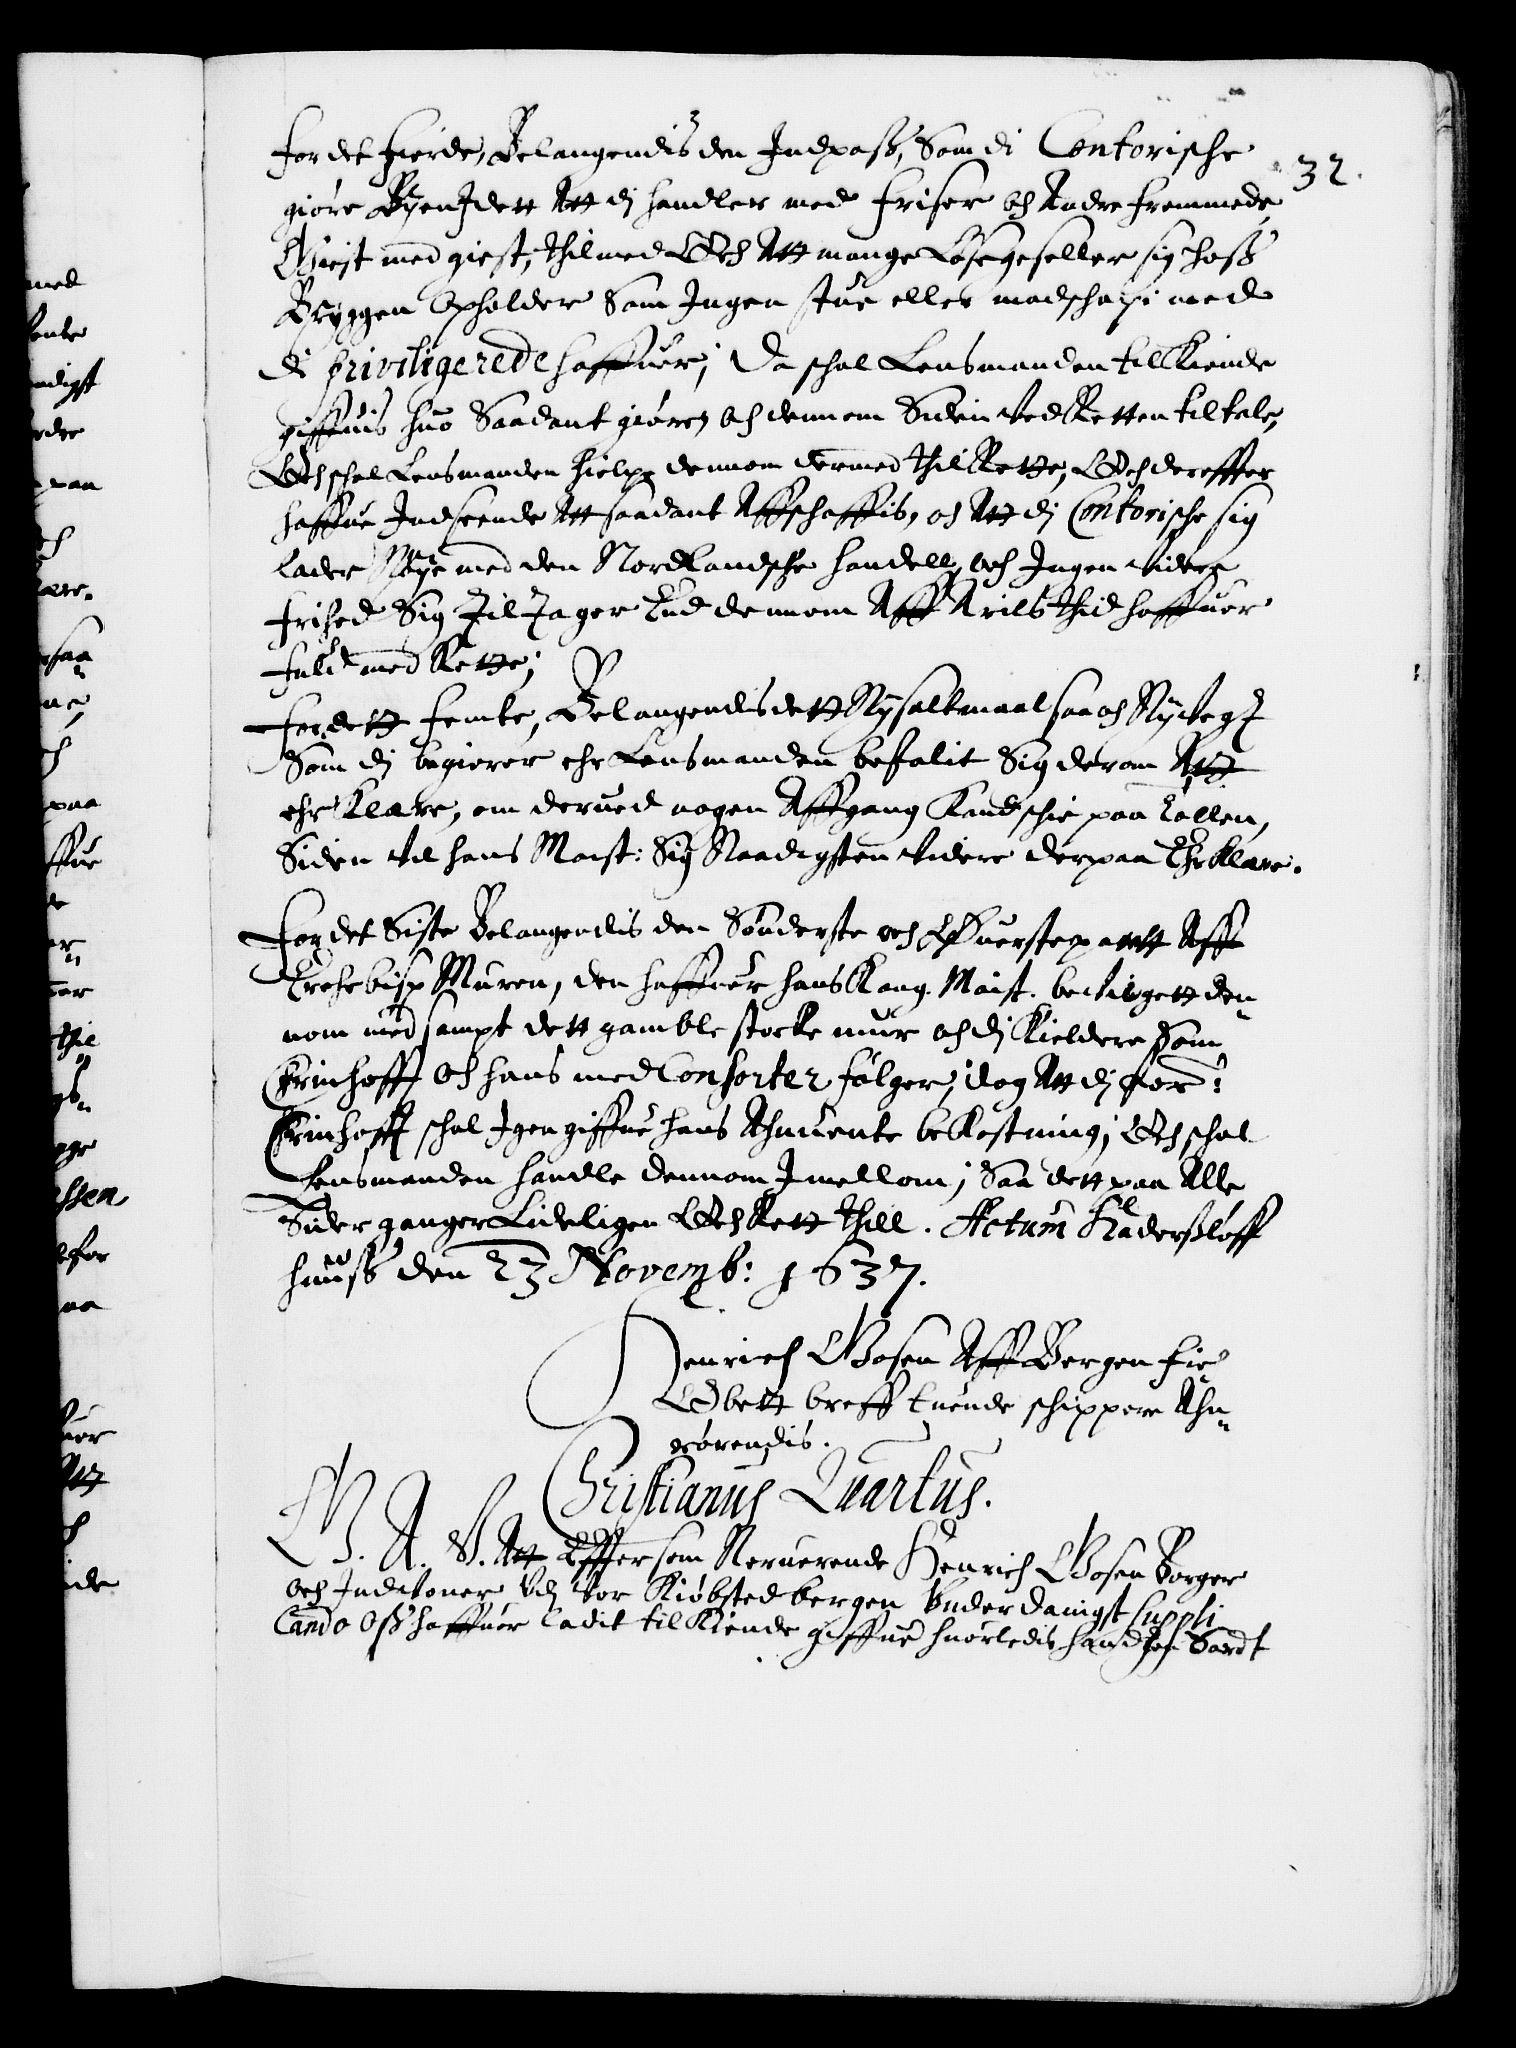 32.
For det Fierde, Belangendis den Indpass, Som di Contorische
giøre Byen Idett Att di handler med friser och Andre fremmede
Giest med giest, thilmed Och Att mange Løsegeseller sig hoss
Bryggen Opholder Som Ingen stue eller madschafi med
di priviligerede haffuer, Da schal Lensmanden tilkiende
giffuis huo Saadant giører, och dennom Siden Ved Retten tiltale,
Och schal Lensmanden hielpe dennom dermed thil Rette, Och dereffter
haffue Indseende Att saadant Affschaffis, och Att di Contorische sig
lader Nøye med den Nordlandsche handell, och Ingen videre
frihed Sig Til Tager End dennom Aff Arilds thid haffuer
fuld med Rette;
For dett Femte, Belangendis dett Ny saltmaal saa och Ny Vegt
Som di begierer ehr Lensmanden befalit Sig derom Att
ehrklære, om derued nogen Affgang Kand schie paa Tollen,
Siden vil hans Maist: Sig Naadigsten videre derpaa Ehrklære.
For det Siste Belangendis den Sønderste och Øfuerste partt Aff
Erchebisp Muren, den haffuer hans Kong. Maist. bevilgett den¬
nom med sampt dett gamble stocke muur och di Kieldere Som
Erinhoff och hans med Consorter følger, dog Att di for:
Erinhoff schal Igen giffue hans Ahnuente bekostning; Och schal
Lensmanden handle dennom Imellom; Saa dett paa Alle
Sider ganger Lideligen Och Rett thill. Actum Haderssløff
huuss den 23 Novemb: 1637.
Henrich Bosen Aff Bergen fich
Obett breff tuende schippere Ahn¬
rørendis.
Christianus Quartus.
G. A. V. Att Effter som Neruerende Henrich Bosen Borger
och Indvoner Udj Vor Kiøbsted bergen Underdanigst suppli
cando Oss haffuer ladit tilkiende giffue huorledis hand sch Sardt